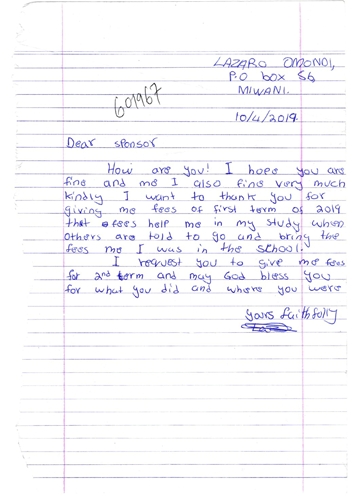 LAZARO OMONDI,
P.O box 56
MIWANI.
601967
10/4/2019
Dear sponsor
How are you! I hope you are
fine and me I also fine very much
kindly I want to thank you for
giving me fees of first term of 2019
that fees help me in my study when
others are told to go and bring the
fees me I was in the school.
I request you to give me fees
for 2nd term and may God bless you
for what you did and where you were
yours faithfully